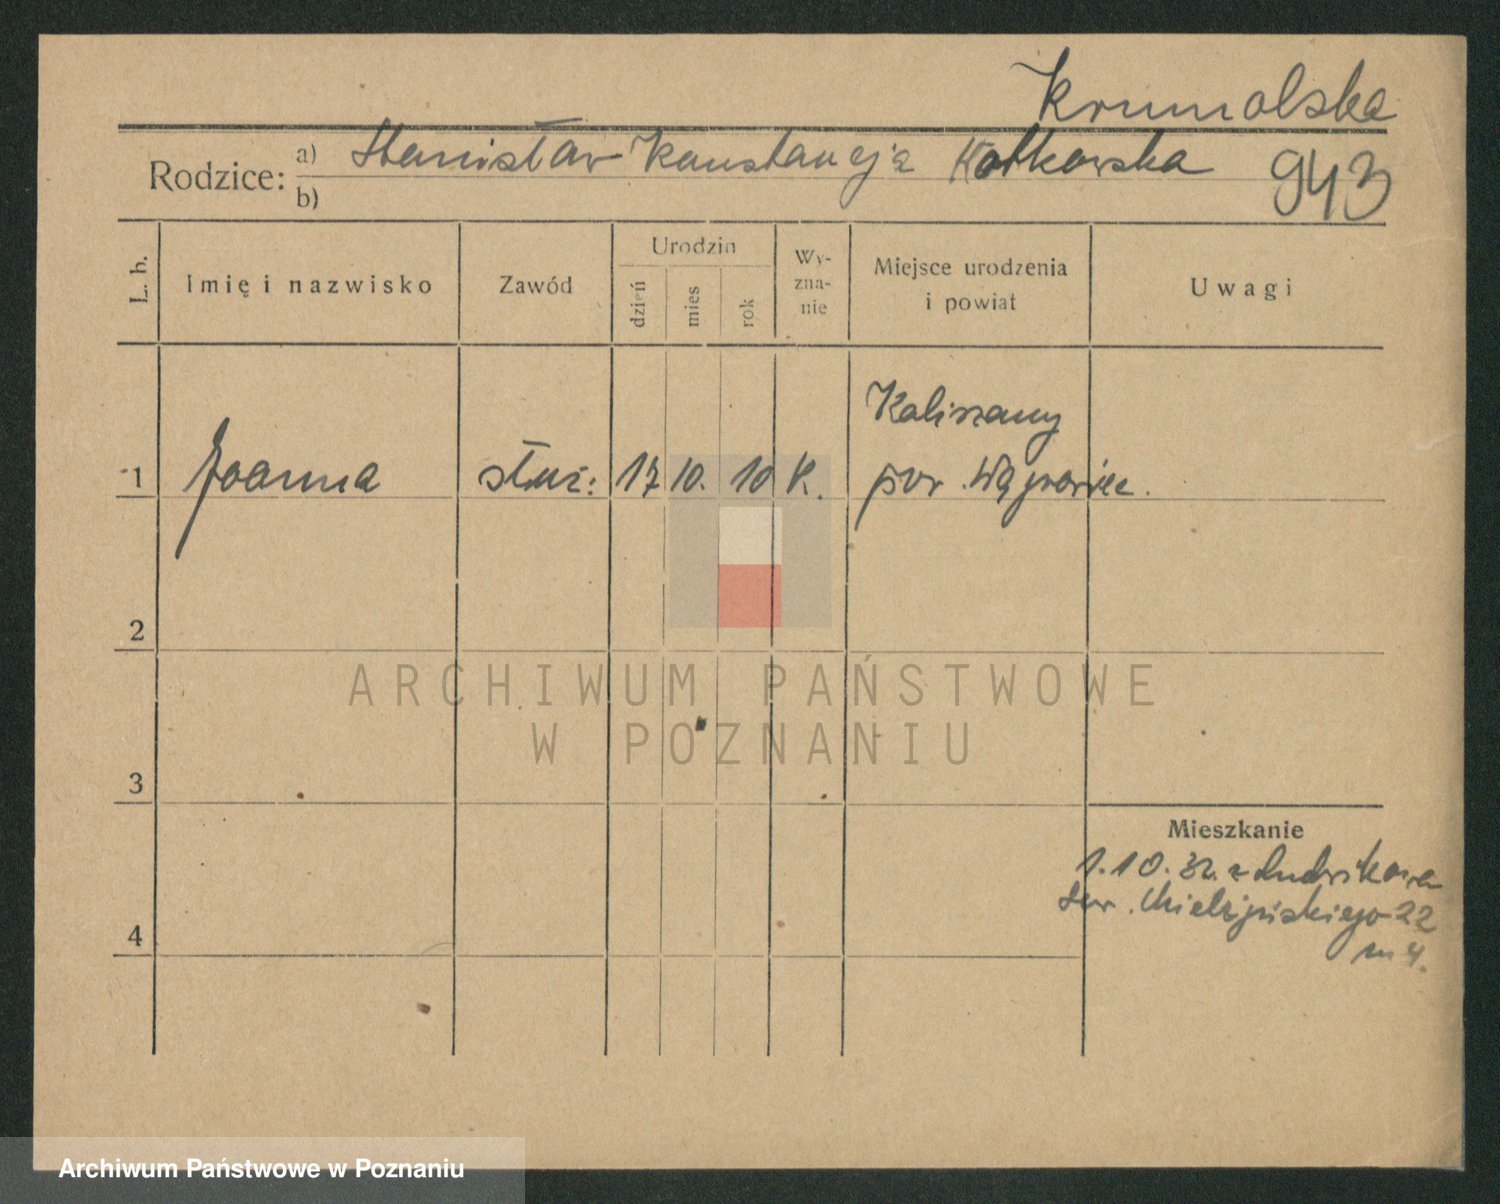 Krumolska
Rodzice: a) Stanisław Konstancja Kotkowska
943
b)
L. b.
Imię i nazwisko
Zawód
Urodzin
dzień
mies
rok
Wy-
zna-
nie
Miejsce urodzenia
i powiat
Uwagi
Kaliszany
1 Joanna służ: 17 10. 10 K. pow. Wągrowiec.
2
ARCHIWUM PAŃSTWOWE
W POZNANIU
3
Mieszkanie
1.10.32. z Ludwikowa
22
4
m 4.
Archiwum Państwowe w Poznaniu